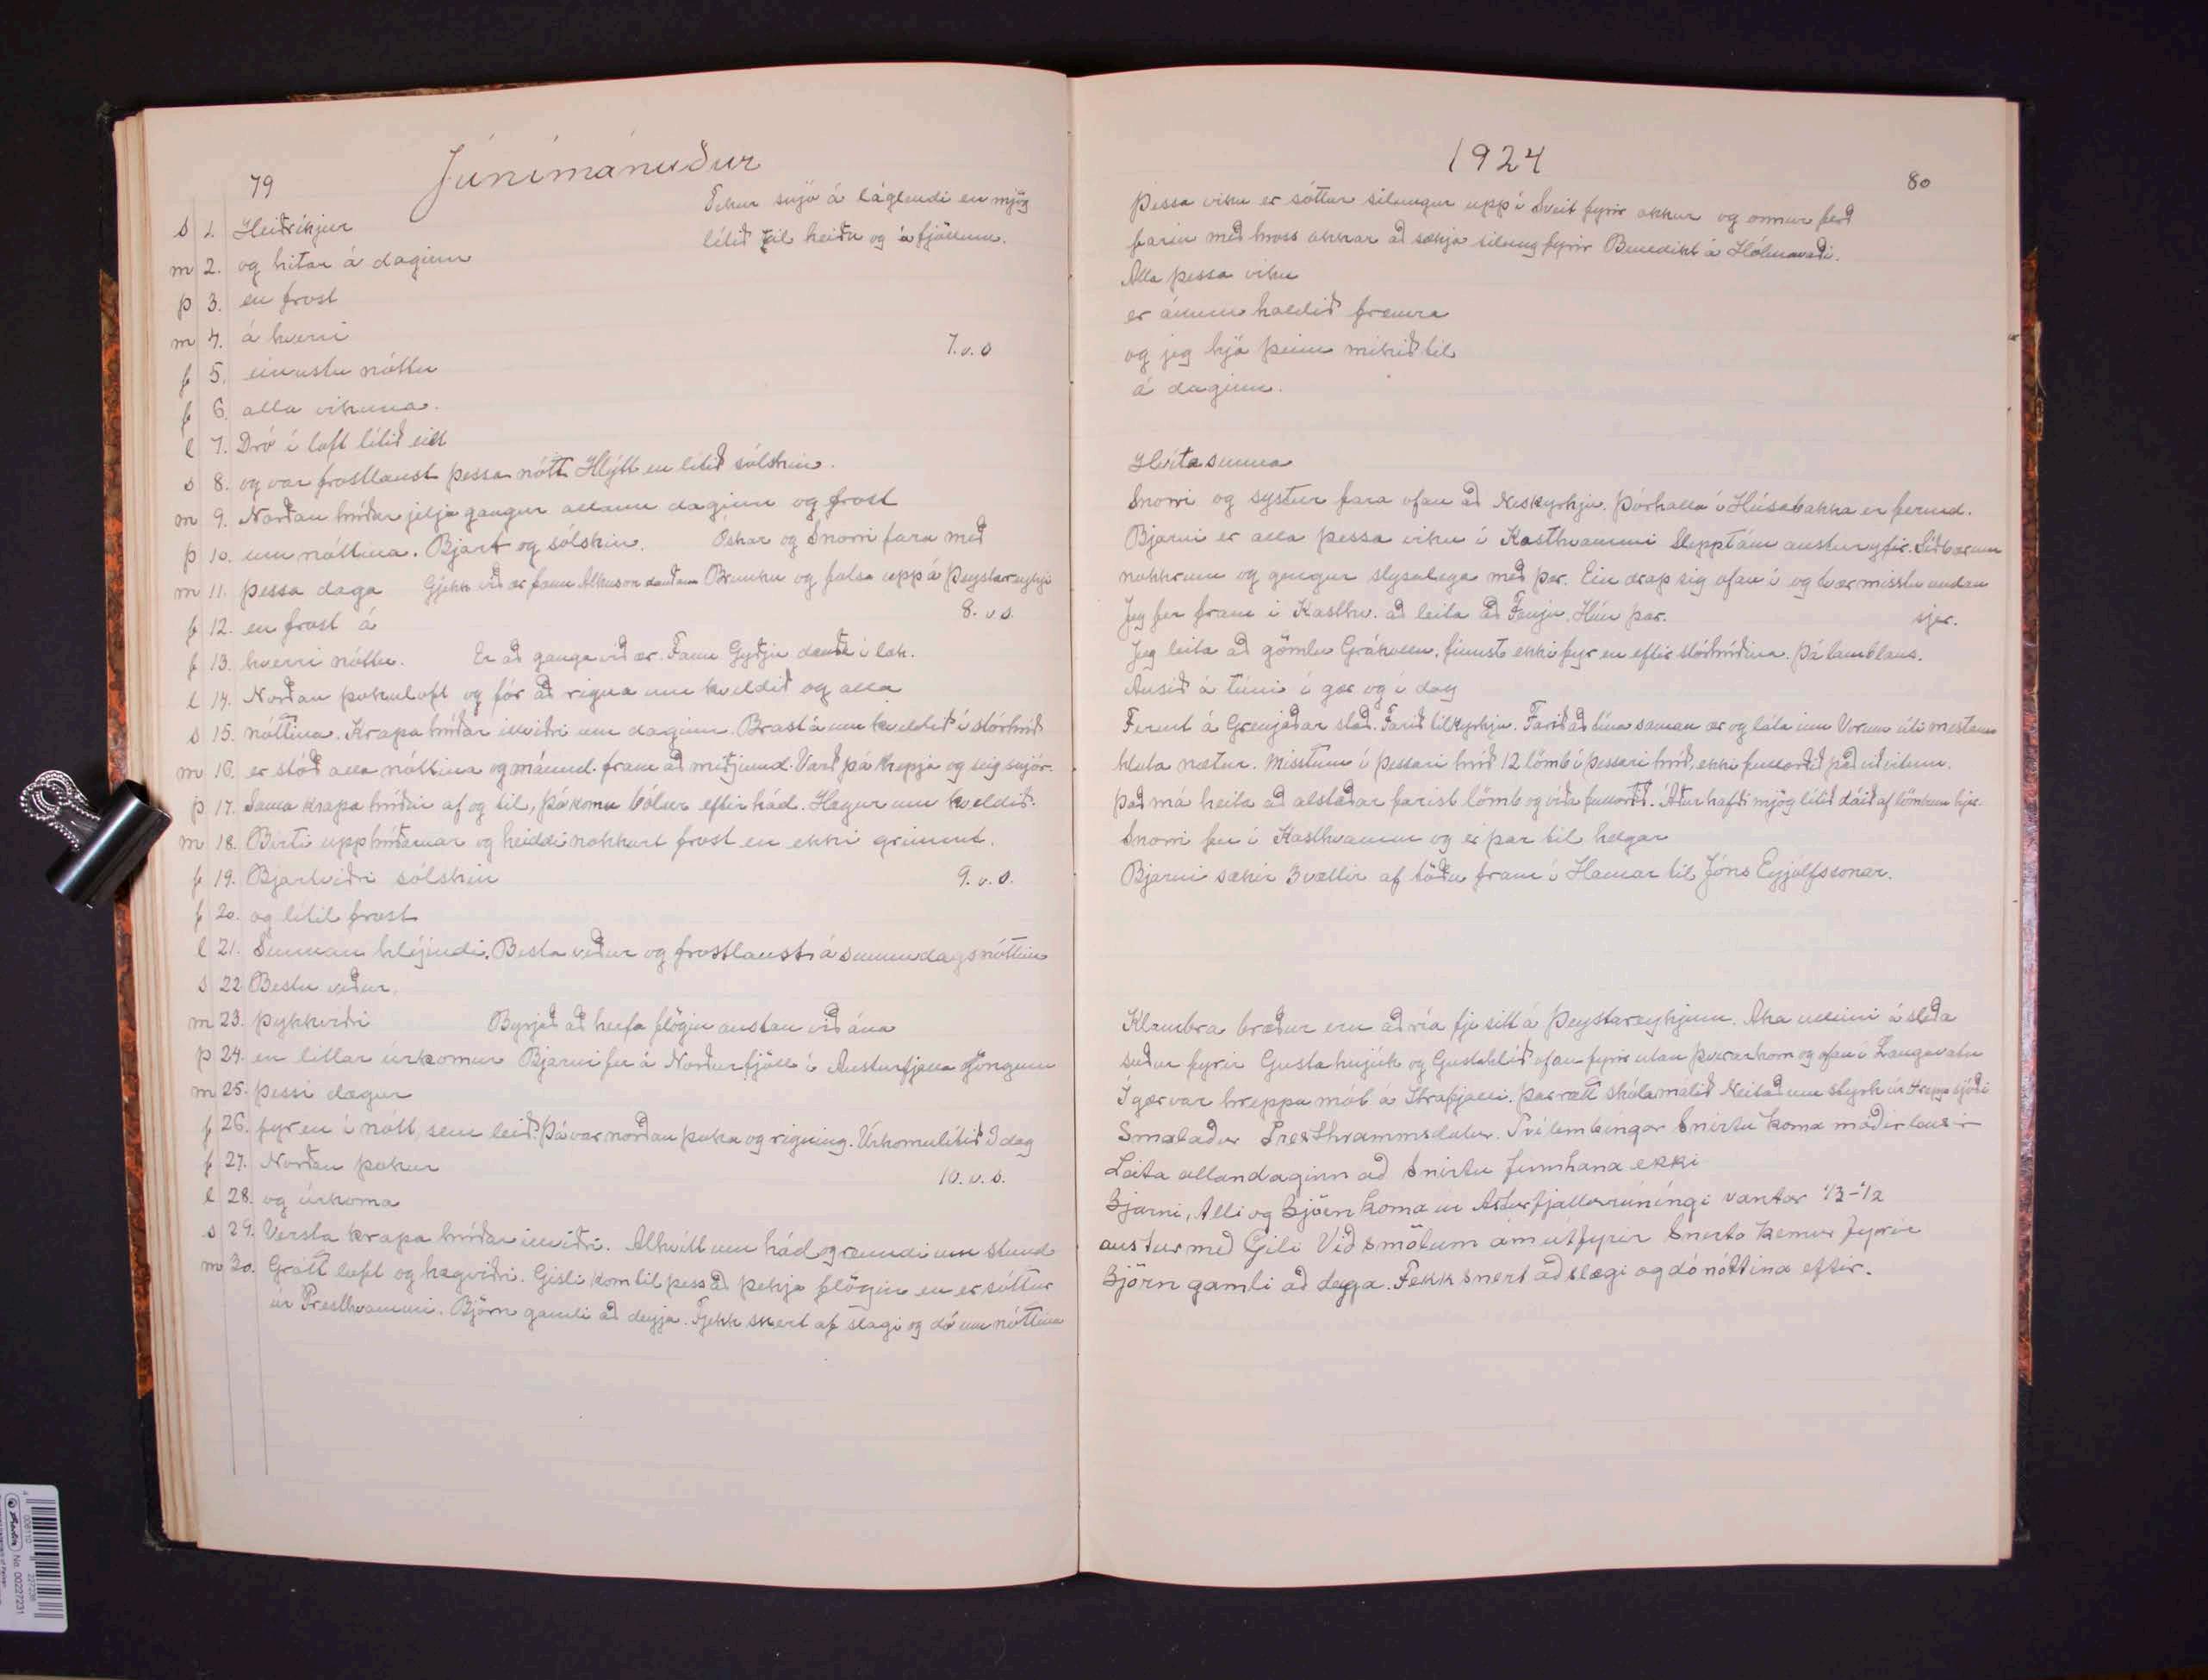 79
Júnímánuður
Tekur snjó á láglendi en mjög
lítið til heiða og á fjöllum.
s 1. Heiðríkjur
m 2. og hitar á daginn
þ 3. en frost
m 4. á hverri
7.v.s
f 5. einustu nóttu
f 6. alla vikuna.
l 7. Dró í loft lítið eitt
s 8. og var frostlaust þessa nótt Hlýtt en lítið sólskin.
m 9. Norðan hríðar jelja gangur allann daginn og frost
þ 10. um nóttina. Bjart og sólskin. Óskar og Snorri fara með
m 11. þessa daga Gjekk við ær fann dauðann Brunku og fola upp á Þeystareyki
8. v s.
f 12. en frost á
f 13. hverri nóttu. Er að ganga við ær. Fann Gyðju dauða í læk.
l 14. Norðan þokuloft og fór að rigna um kveldið og alla
s 15. nóttina. Krapa hríðar illviðri um daginn. Brast á um kveldið í stórhríð
m 16. er stóð alla nóttina og mánud. fram að miðjund. Varð þá kreppja og seig snjór.
þ 17. Sama krapa hríðin af og til, þó komu bólur eftir hád. Hægur um kveldið.
m 18. Birti upp hríðarnar og heiddi nokkurt frost en ekki grimmt.
f 19. Bjartviðri sólskin
9. v. s.
f 20. og lítil frost
l 21. Sunnan hlýjindi. Besta veður og frostlaust á sunnudagsnóttina
s 22 Bestu veður.
m 23. Þykkviðri Byrjað að herfa flögin austan við ána
þ 24. en litlar úrkomur Bjarni fer á Norðurfjöll í Austurfjalla göngum
m 25. þessi dægur
f 26. fyr en í nótt, sem leið. Þá var norðan þoka og rigning. Úrkomulítið Í dag
f 27. Norðan þokur
10. v. s.
l 28. og úrkoma
s 29. Versta krapa hríðar illviðri. Alhvítt um hád og renndi um stund
m 30. Grátt loft og hægviðri. Gisli kom til þess að þekja flögin en er sóttur
úr Presthvammi. Björn gamli að deyja. Fjekk snert af slagi og dó um nóttina
1924
80
Þessa viku er sóttur silungur upp í Sveit fyrir okkur og onnur ferð
farin með hross okkar að sækja silung fyrir Benedikt á Hólmavaði.
Alla þessa viku
er ánum haldið framra
og jeg hjá þeim mikið til
á daginn.
Hvítasunna
Snorri og systur fara ofan að Neskyrkju. Þórhalla í Húsabakka er fermd.
Bjarni er alla þessa viku í Kasthvammi Slepptám austur yfir. Síðbærum
nokkrum og gengur slysalega með þær. Ein drap sig ofan í og tvær misstu undan
sjer.
Jeg fer fram í Kasthv. að leita að Fenju. Hún þar.
Jeg leita að gömlu Grákollu, finnst ekki fyr en eftir stórhríðina. Þá lamblaus.
Ausið á túni í gær og í dag
Fermt á Grenjaðar stað. Farið til kyrkju. Farið að tína saman ær og láta inn Vorum úti mestann
hluta nætur. Misstum í þessari hríð 12 lömb í þessari hríð, ekki fullorðið það við vitum.
Það má heita að alstaðar farist lömb og víða fullorðið. Áður hafði mjög lítið dáið af lömbum hjer.
Snorri fer í Kasthvamm og er þar til helgar
Bjarni sækir 3 vættir af töðu fram í Hamar til Jóns Eyjólfssonar.
Klambra bræður eru að ría fje sitt á Þeystareykjum. Aka ullinni á sleða
suður fyrir Gustahnjúk og Gustahlíð ofan fyrir utan Þverarhorn og ofan í Langavatn
Í gær var hreppamót á Ytrafjalli. Þar rætt skólamálið Neitað um styrk úr hreppssjóði
Smalaður Presthvammsdalur. Tvílembingar Snirtu koma móðirlausir
Leita allandaginn að Snirtu finnhana ekki
Bjarni, Alli og Björn koma úr Asturfjallarúningi vantar 1/3-1/2
austur með Gili Við smölum ám útfyrir Snerta kemur fyrir
Björn gamli að deyja. Fekk snert að slægi og dó nóttina eftir.